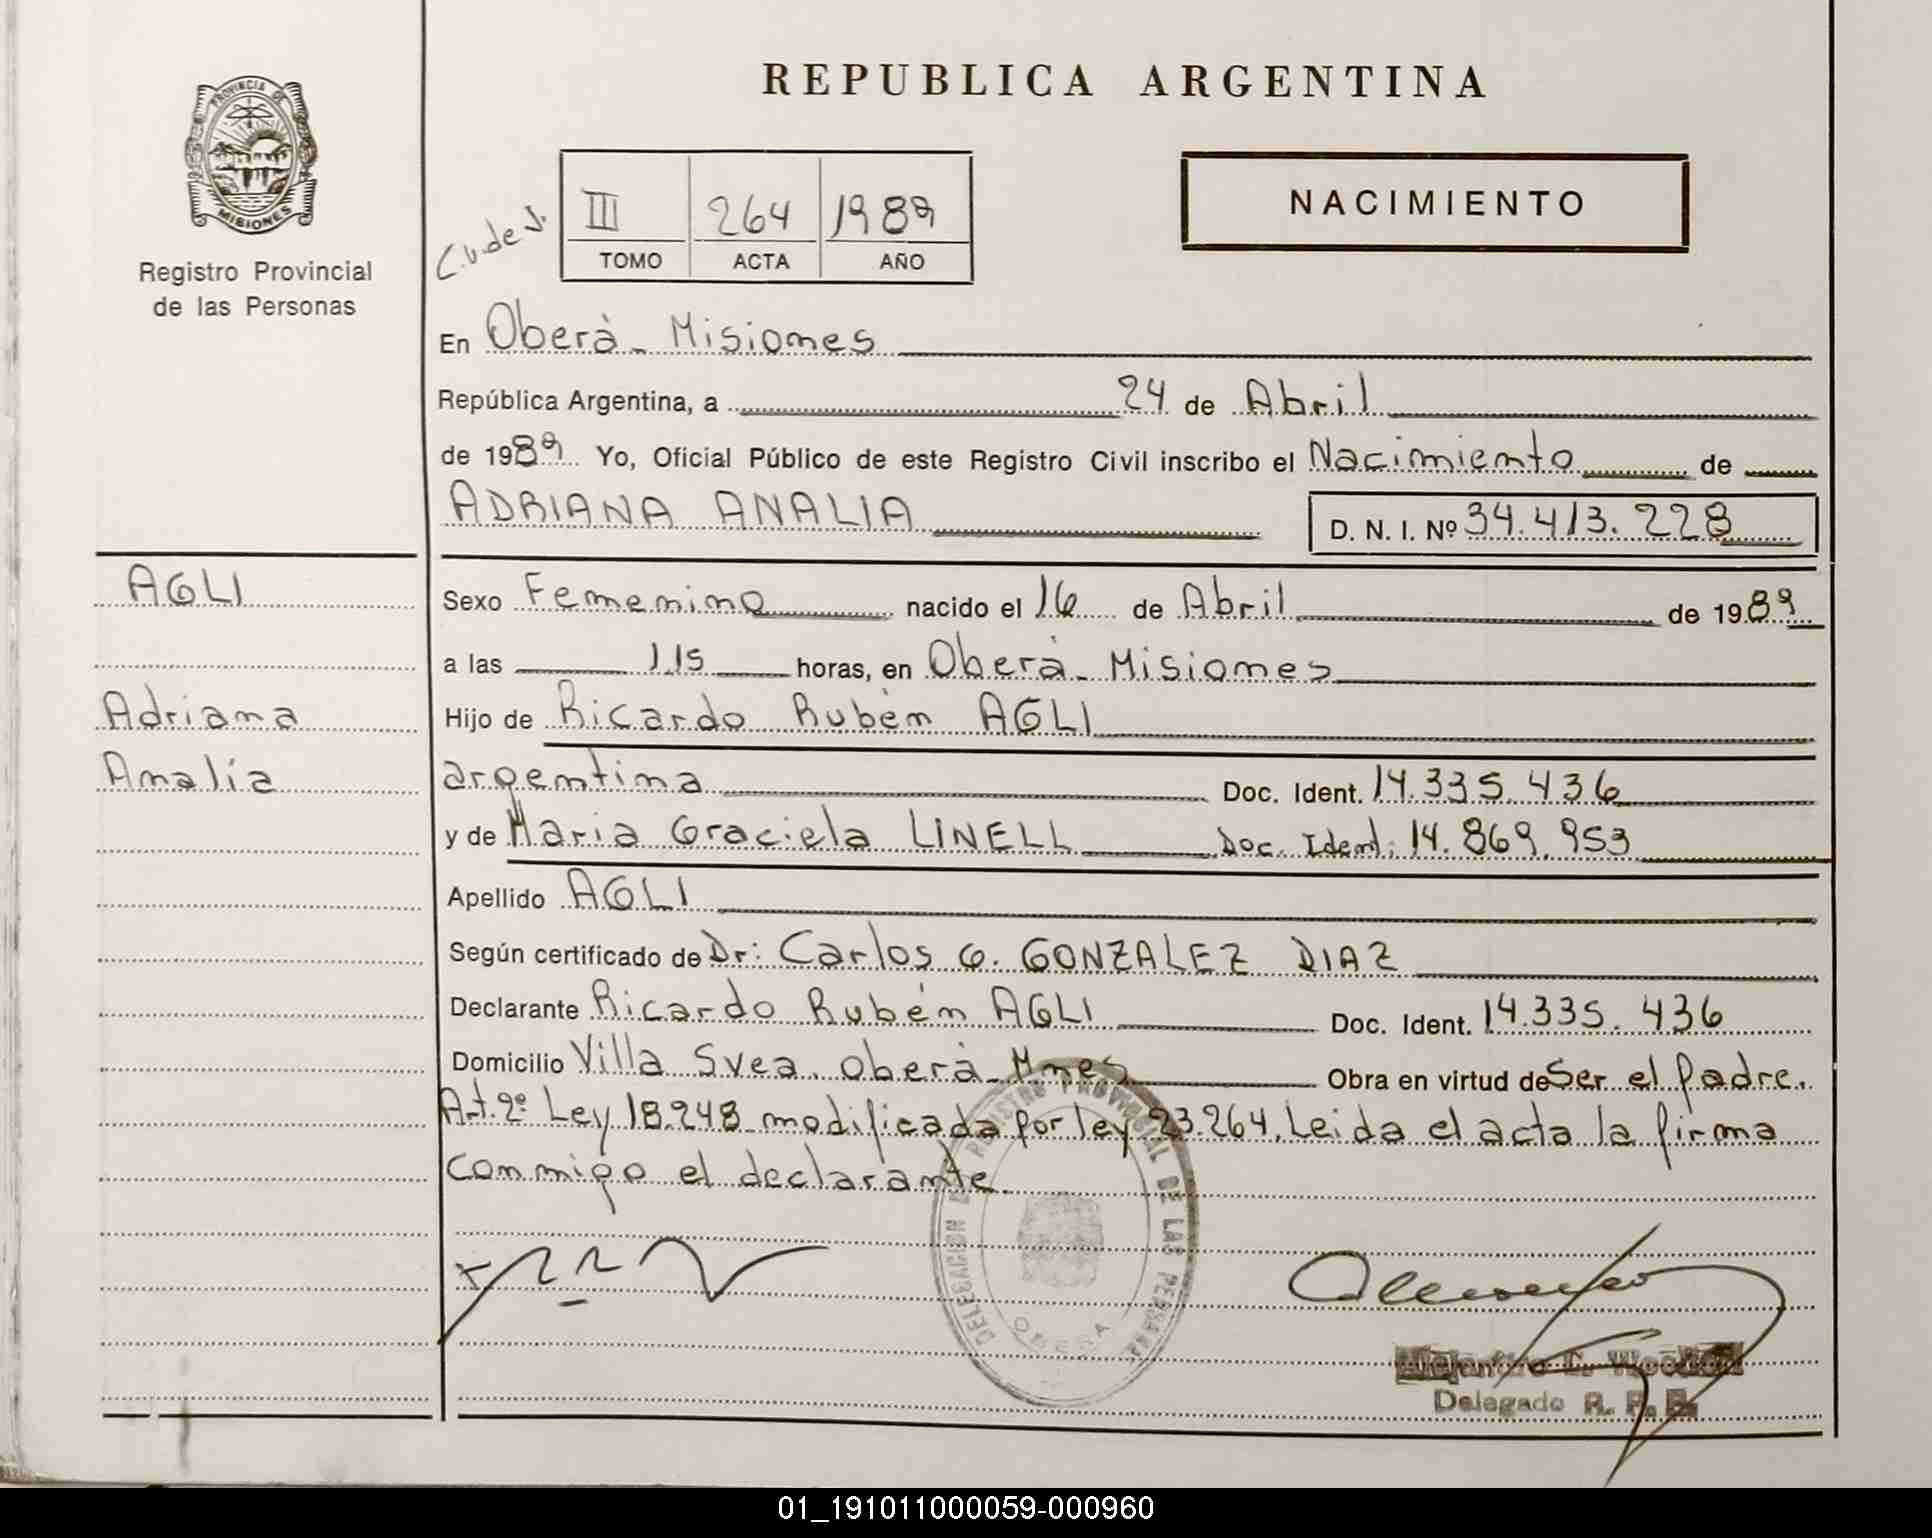 REPUBLICA ARGENTINA
PROVINCIA DE
MISIONES
Registro Provincial
de las Personas
III 264 1989
TOMO ACTA AÑO
NACIMIENTO
En Oberà - Misiones
República Argentina, a 24 de Abril
de 1989 Yo, Oficial Público de este Registro Civil inscribo el Nacimiento de
ADRIANA ANALIA D. N. I. Nº 34.413.228
AGLI
Adriana
Analía
Sexo Femenino nacido el 16 de Abril de 1989
a las 1,15 horas, en Oberà - Misiones
Hijo de Ricardo Rubén AGLI
argentina Doc. Ident. 14.335.436
y de Maria Graciela LINELL Doc. Ident: 14.869.953
Apellido AGLI
Según certificado de Dr: Carlos G. GONZALEZ DIAZ
Declarante Ricardo Rubén AGLI Doc. Ident. 14.335.436
Domicilio Villa Svea. Oberà - Mnes Obra en virtud de Ser el Padre.
Art. 2º Ley 18.248 modificada por ley 23.264. Leida el acta la firma
conmigo el declarante.
DELEGACION DEL REGISTRO PROVINCIAL DE LAS PERSONAS
OBERA
Delegado R. P. P.
01_191011000059-000960